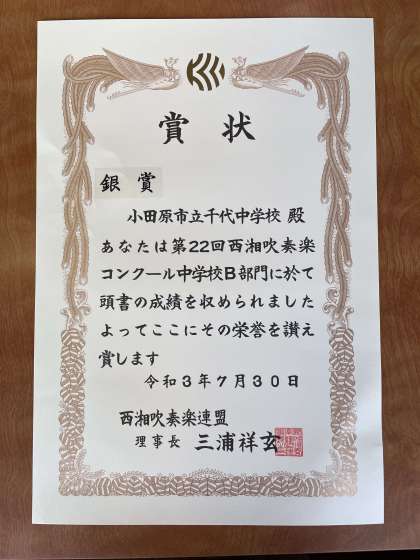 賞状
銀賞
小田原市立千代中学校 殿
あなたは第22回西湘吹奏楽
コンクール中学校B部門に於て
頭書の成績を収められました
よってここにその栄誉を讃え
賞します
令和3年7月30日
西湘吹奏楽連盟
理事長 三浦祥玄